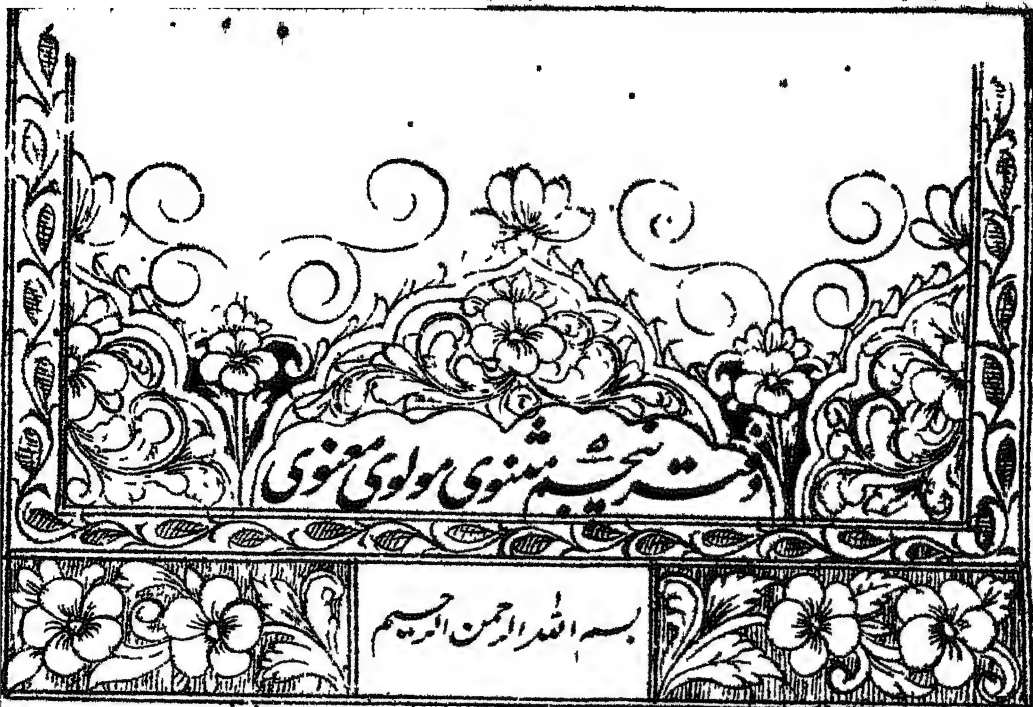 دفتر پنجم مثنوی مولوی معنوی
بسم الله الرحمن الرحیم